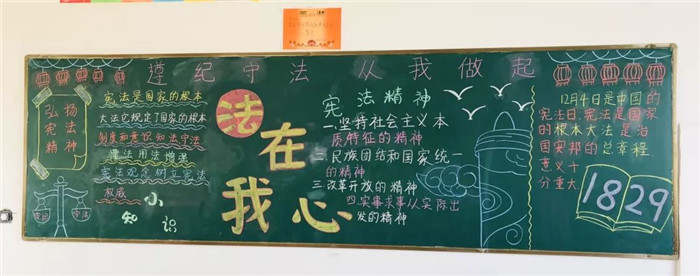 遵纪守法 从我做起
弘扬
宪法
精神
宪法是国家的根本
大法它规定了国家的根本
制度和意识知法守法
遵法用法增强
宪法观念树立宪法
权威
小
知识
法
在
我心
宪法精神
一.坚持社会主义本
质特征的精神
二.民族团结和国家统一
的精神
三.改革开放的精神
四.实事求事从实际出
发的精神
12月4日是中国的
宪法日.宪法是国家
的根本大法是治
国安邦的总章程
意义十
分重大
1829